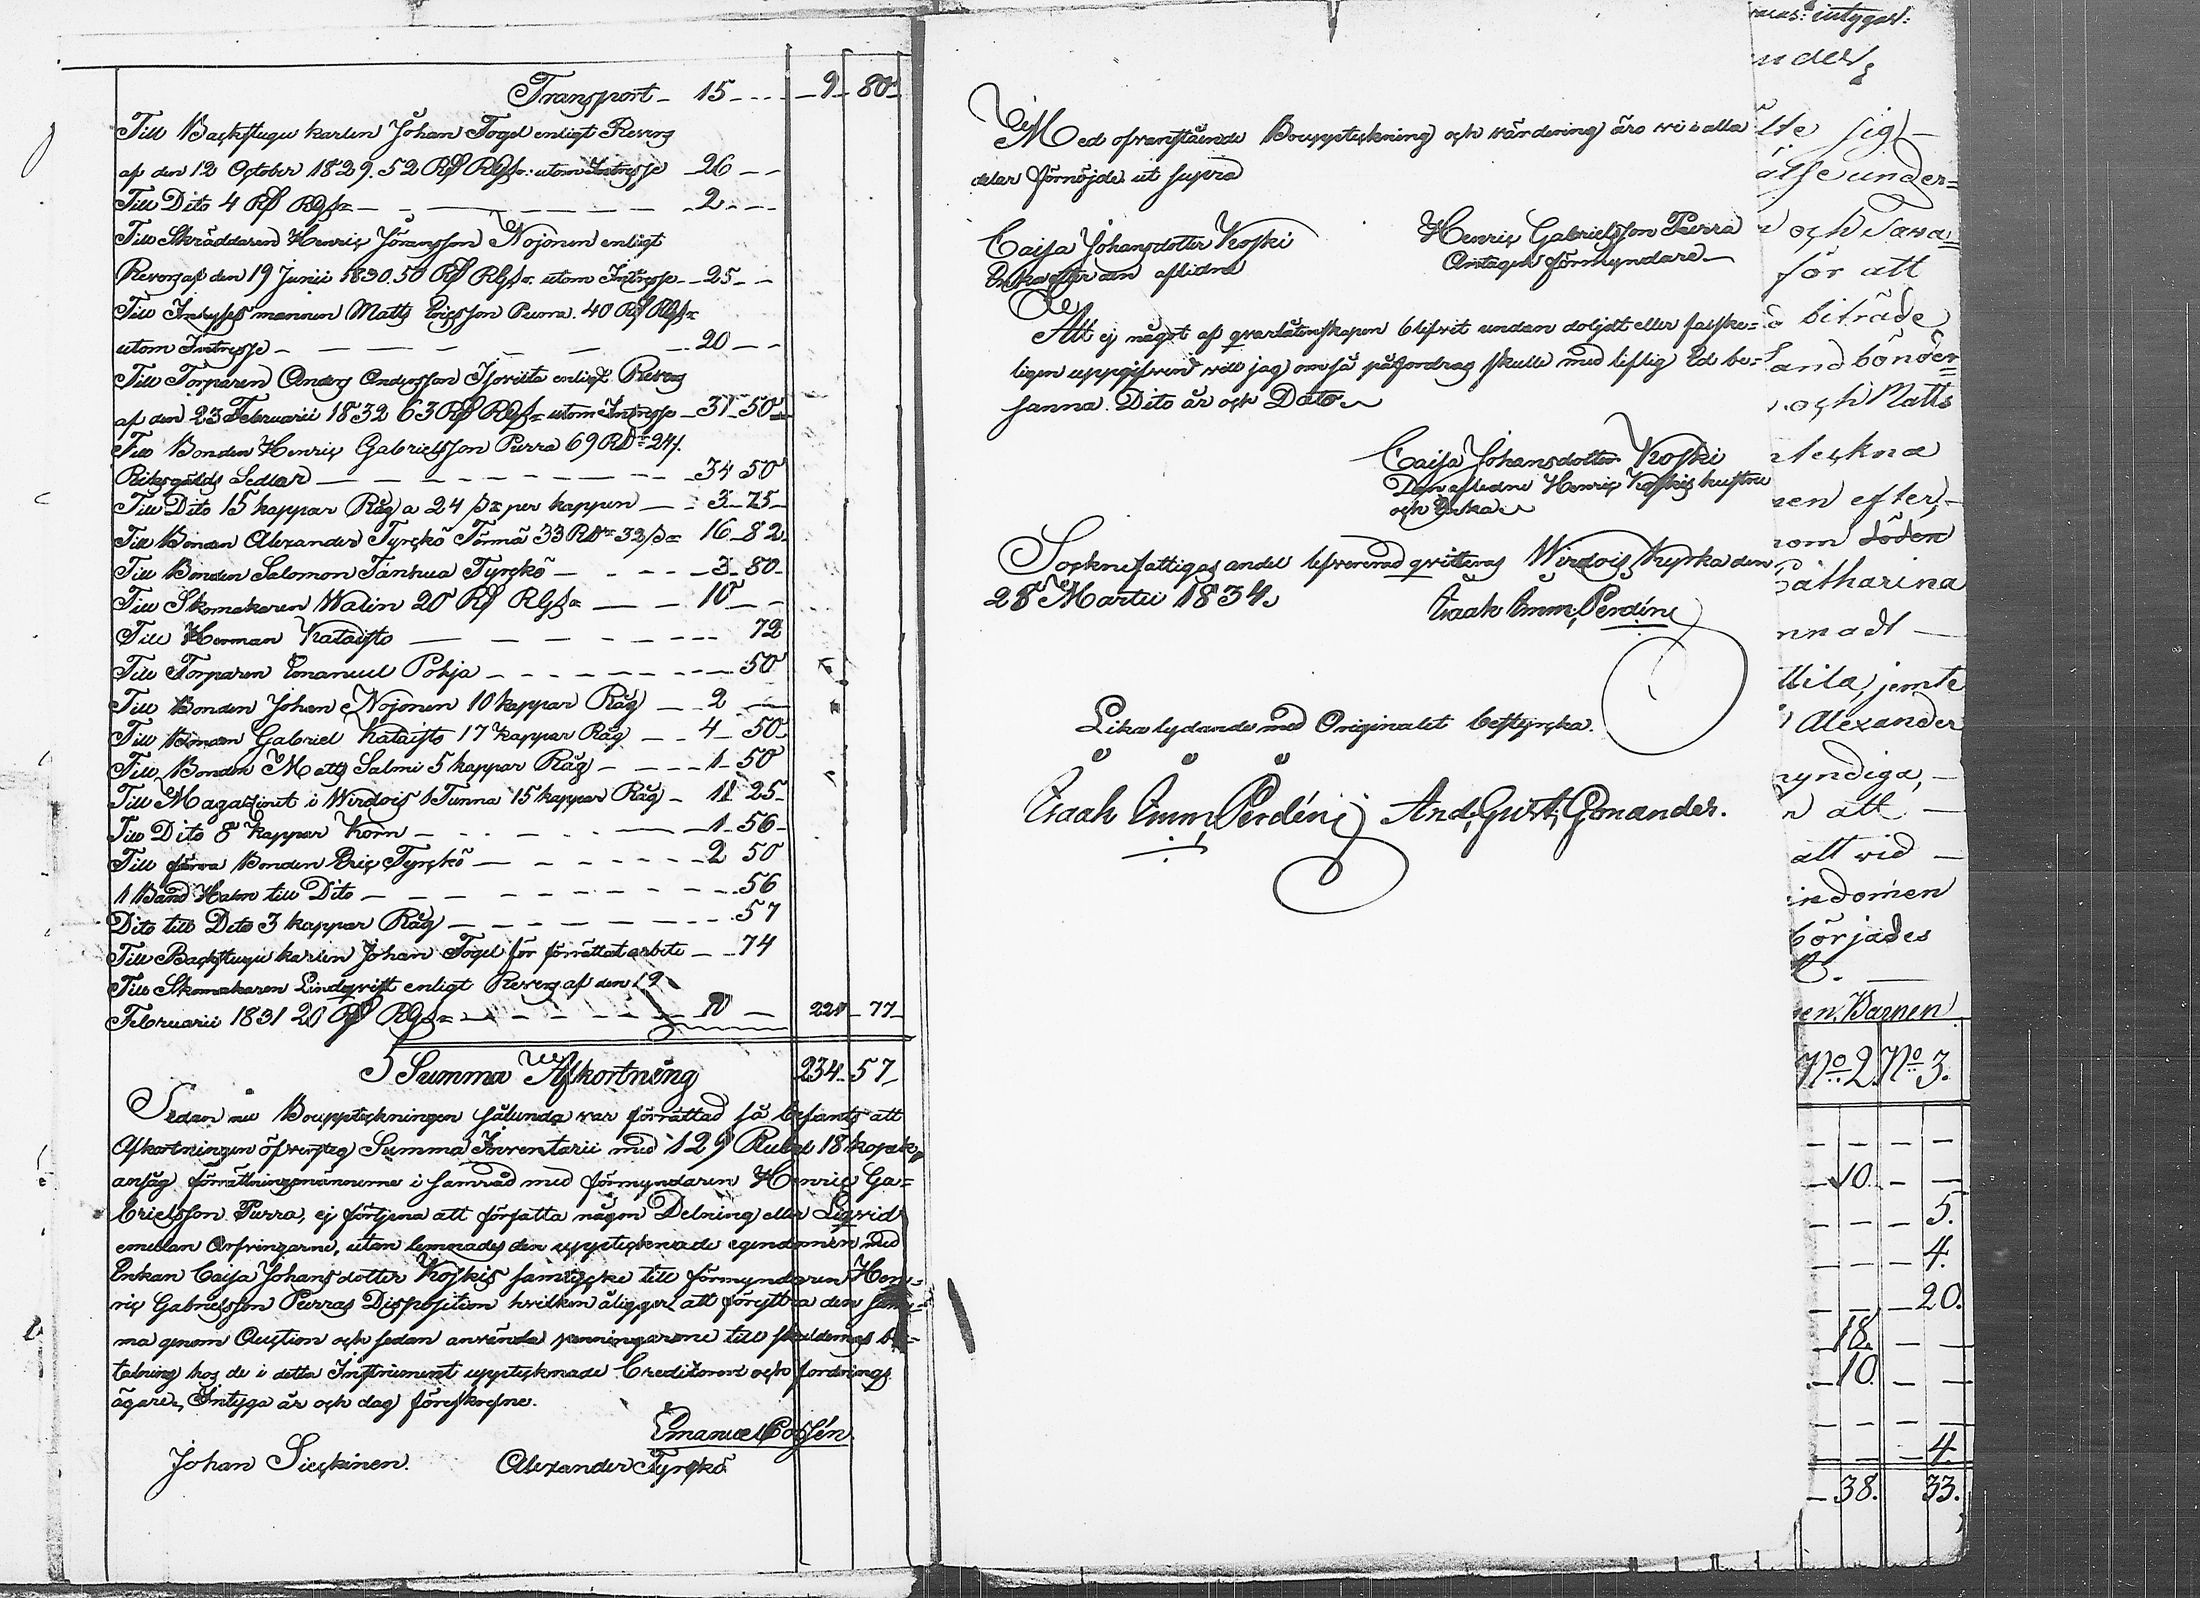 Transport - 15 - - - - 9 - 80 -
Till Backstugu karlen Johan Fogel enligt Revers
af den 12 October 1829. 52 RD RGs: utom Intresse - 26 - -
Till Dito 4 RD RGs - - - - 2 - - -
Till Skräddaren Henric Jöransson Nojonen enligt
Revers af den 19 Junii 1830. 50 RD RGs utom Intresse - 25 - -
Till Inhyses mannen Matts Ericsson Purra. 40 RD RGs
utom Intresse - - - - - 20 - -
Till Torparen Anders Andersson enligt Revers
af den 23 Februarii 1832 63 RD RGs utom Intresse - 31 - 50
Till Bonden Henric Gabrielsson Purra 69 RD 24 s.
Riksgälds Sedlar - - - - 34 50
Till Dito 15 kappar Råg a 24 s per kappen - - 3 - 75 -
Till Bonden Alexander Tyrckö Törmä 33 RD 33 s 16 - 82
Till Bonden Salomon Tanhua Tyrckö - - - 3 - 80 -
Till Skomakaren Walin 20 RD RGs - - 10 - -
Till Herman Kataisto - - - - 72
Till Torparen Emanuel Pohja - - - - 50
Till Bonden Johan Nojonen 10 kappar Råg - 2 -
Till Bonden Gabriel Kataisto 17 kappar Råg - 4 - 50
Till Bonden Matts Salmi 5 kappar Råg - - 1 - 50
Till Magasinet i Wirdois 1 Tunna 15 kappar Råg - 11 25 -
Till Dito 8 kappar Korn - - - 1 - 56 -
Till förra Bonden Eric Tyrckö - - - 2 50
1 Band Halm till Dito - - - - 56
Dito till Dito 3 kappar Råg - - - - 57
Till Backstugu karlen Johan Fogel för förrättat arbete - 74
Till Skomakaren Lindqvist enligt Revers af den 19
Februarii 1831 20 RD RGs - - - - 10 - 224 - 77 -
Summa Afkortning 234 - 57 -
Sedan nu Bouppteckningen sålunda var förrättad så befants att
Afkortningen öfversteg Summa Inventarii med 129 Rubel 18 kopek,
ansåg förrättningsmännerne i samråd med förmyndaren Henric Ga=
brielsson Purra, ej förtjena att författa någon Delning eller Liqvid
emellan Arfvingarne, utan lemnades den upptecknade egendomen med
Enkan Caisa Johansdotter Koskis samtycke till förmyndaren Hen=
ric Gabrielsson Purras Disposition hvilken åligger att föryttra den sam=
ma genom Auction och sedan använda penningarne till skuldernas be=
talning hos de i detta Instrument upptecknade Creditorer och fordrings
ägare, Intyga år och dag föreskrefne.
Emanuel
Johan Sieckinen. Alexander Tyrckö
Med ofvanstående Bouppteckning och värdering äro vi i alla
delar förnöjde ut supra
Caisa Johansdotter Koski
Enka efter den aflidne
Henric Gabrielsson Purra
Antagen förmyndare
Att ej något af qvarlåtenskapen blifvit undan doljdt eller falske=
ligen uppgifven vill jag om så påfordras skulle med liflig Ed be=
sanna. Dito år och Dato
Caisa Johansdotter Koski
Den aflidne Henric Koskis hustru
och Enka
Sockne fattigas andel lefvererad qvitteras Wirdois Kyrka den
28 Martii 1834.
Isaak Emm. Perdén
Lika lydande med Originalet bestyrcka.
Isaak Emm. Perdén And. Gust. Gonander.
intygar:
ndes,
lte sig
else under=
n och Tava=
för att
biträde
Landbönder=
och Matts
teckna
nen efter,
nom döden
Catharina
nnadt
ttila, jemte
Alexander
myndiga,
n att
att vid
indomen
börjades
en, Barnen
No 2 No 3.
- - - -
- 10. - -
- - - 5.
- - - 4.
- - - 20.
- 18. - -
- 10. - -
- - - -
- - - 4.
- 38. 33.